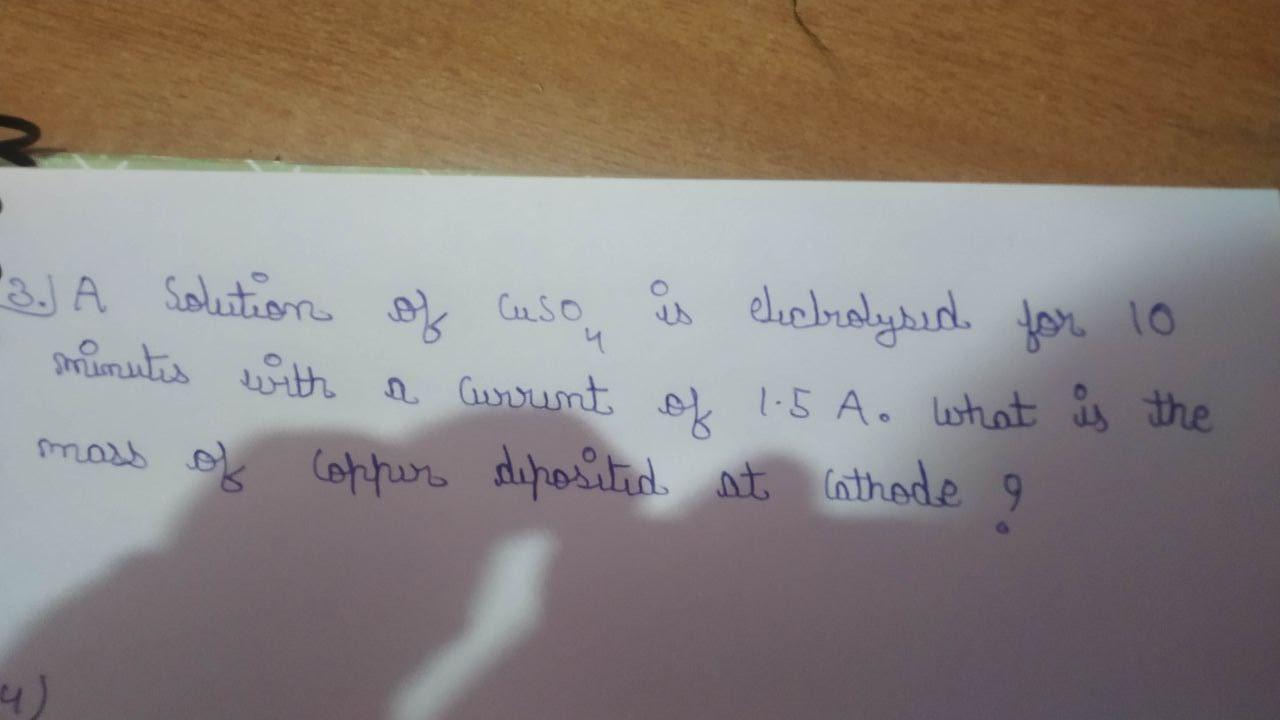 3.) A Solution of CuSO4 is electrolysed for 10
minutes with a current of 1.5 A. what is the
mass of Copper deposited at Cathode ?
4)